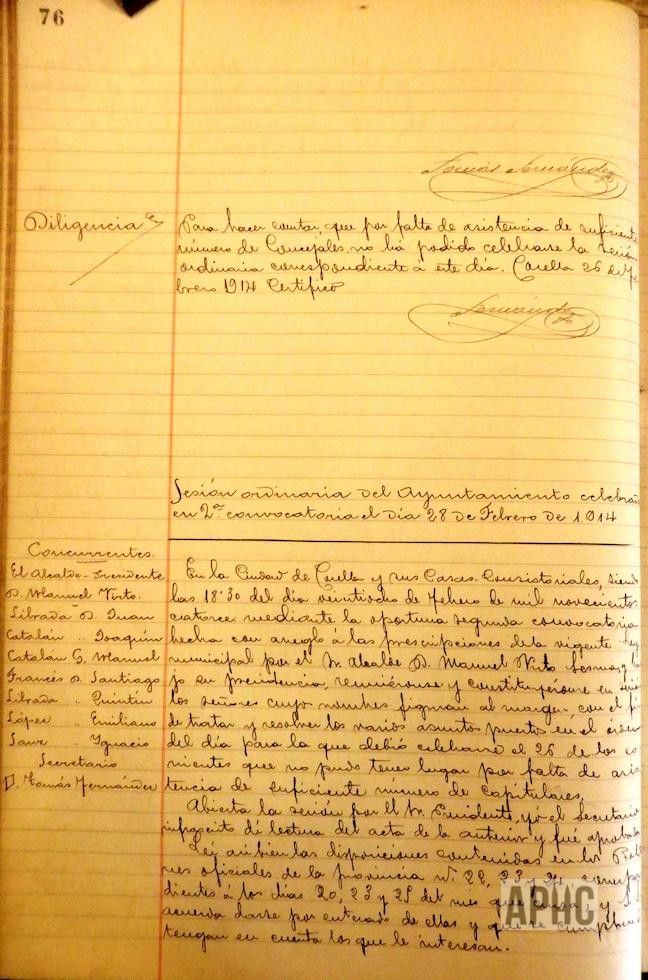 76
Tomás Fernández
Diligencia
Para hacer constar, que por falta de asistencia de suficiente
número de Concejales no ha podido celebrarse la sesión
ordinaria correspondiente á este día. Corella 26 de Fe
brero 1914 Certifico
Fernández
Sesión ordinaria del Ayuntamiento celebra
en 2ª convocatoria el día 28 de Febrero de 1.914
Concurrentes.
El Alcalde-Presidente
D. Manuel Virto.
Librada D. Juan
Catalán " Joaquín
Catalán G. Manuel
Francés D. Santiago
Librada " Quintín
López " Emiliano
Sanz " Ignacio
Secretario
D. Tomás Fernández
En la Ciudad de Corella y sus Casas Consistoriales, siendo
las 18'30 del día veintiocho de Febrero de mil novecientos
catorce mediante la oportuna segunda convocatoria
hecha con arreglo á las prescripciones de la vigente ley
municipal por el Sr. Alcalde D. Manuel Virto
jo su presidencia, reuniéronse y constituyéronse en sesión
los señores cuyos nombres figuran al margen, con el
de tratar y resolver los varios asuntos puestos en el orden
del día para la que debió celebrarse el 26 de los co
rrientes que no pudo tener lugar por falta de asis
tencia de suficiente número de capitulares.
Abierta la sesión por el Sr. Presidente, yó el Secretario
infrascrito dí lectura del acta de la anterior y fué aprobada
Leí así bien las disposiciones contenidas en los Bole
nes oficiales de la provincia nº. 22, 23 y 24 corespon
dientes á los días 20, 23 y 25 del mes que cursa, y se
acuerda darse por enterado de ellas y que se
tengan en cuenta los que le interesan.
APHC